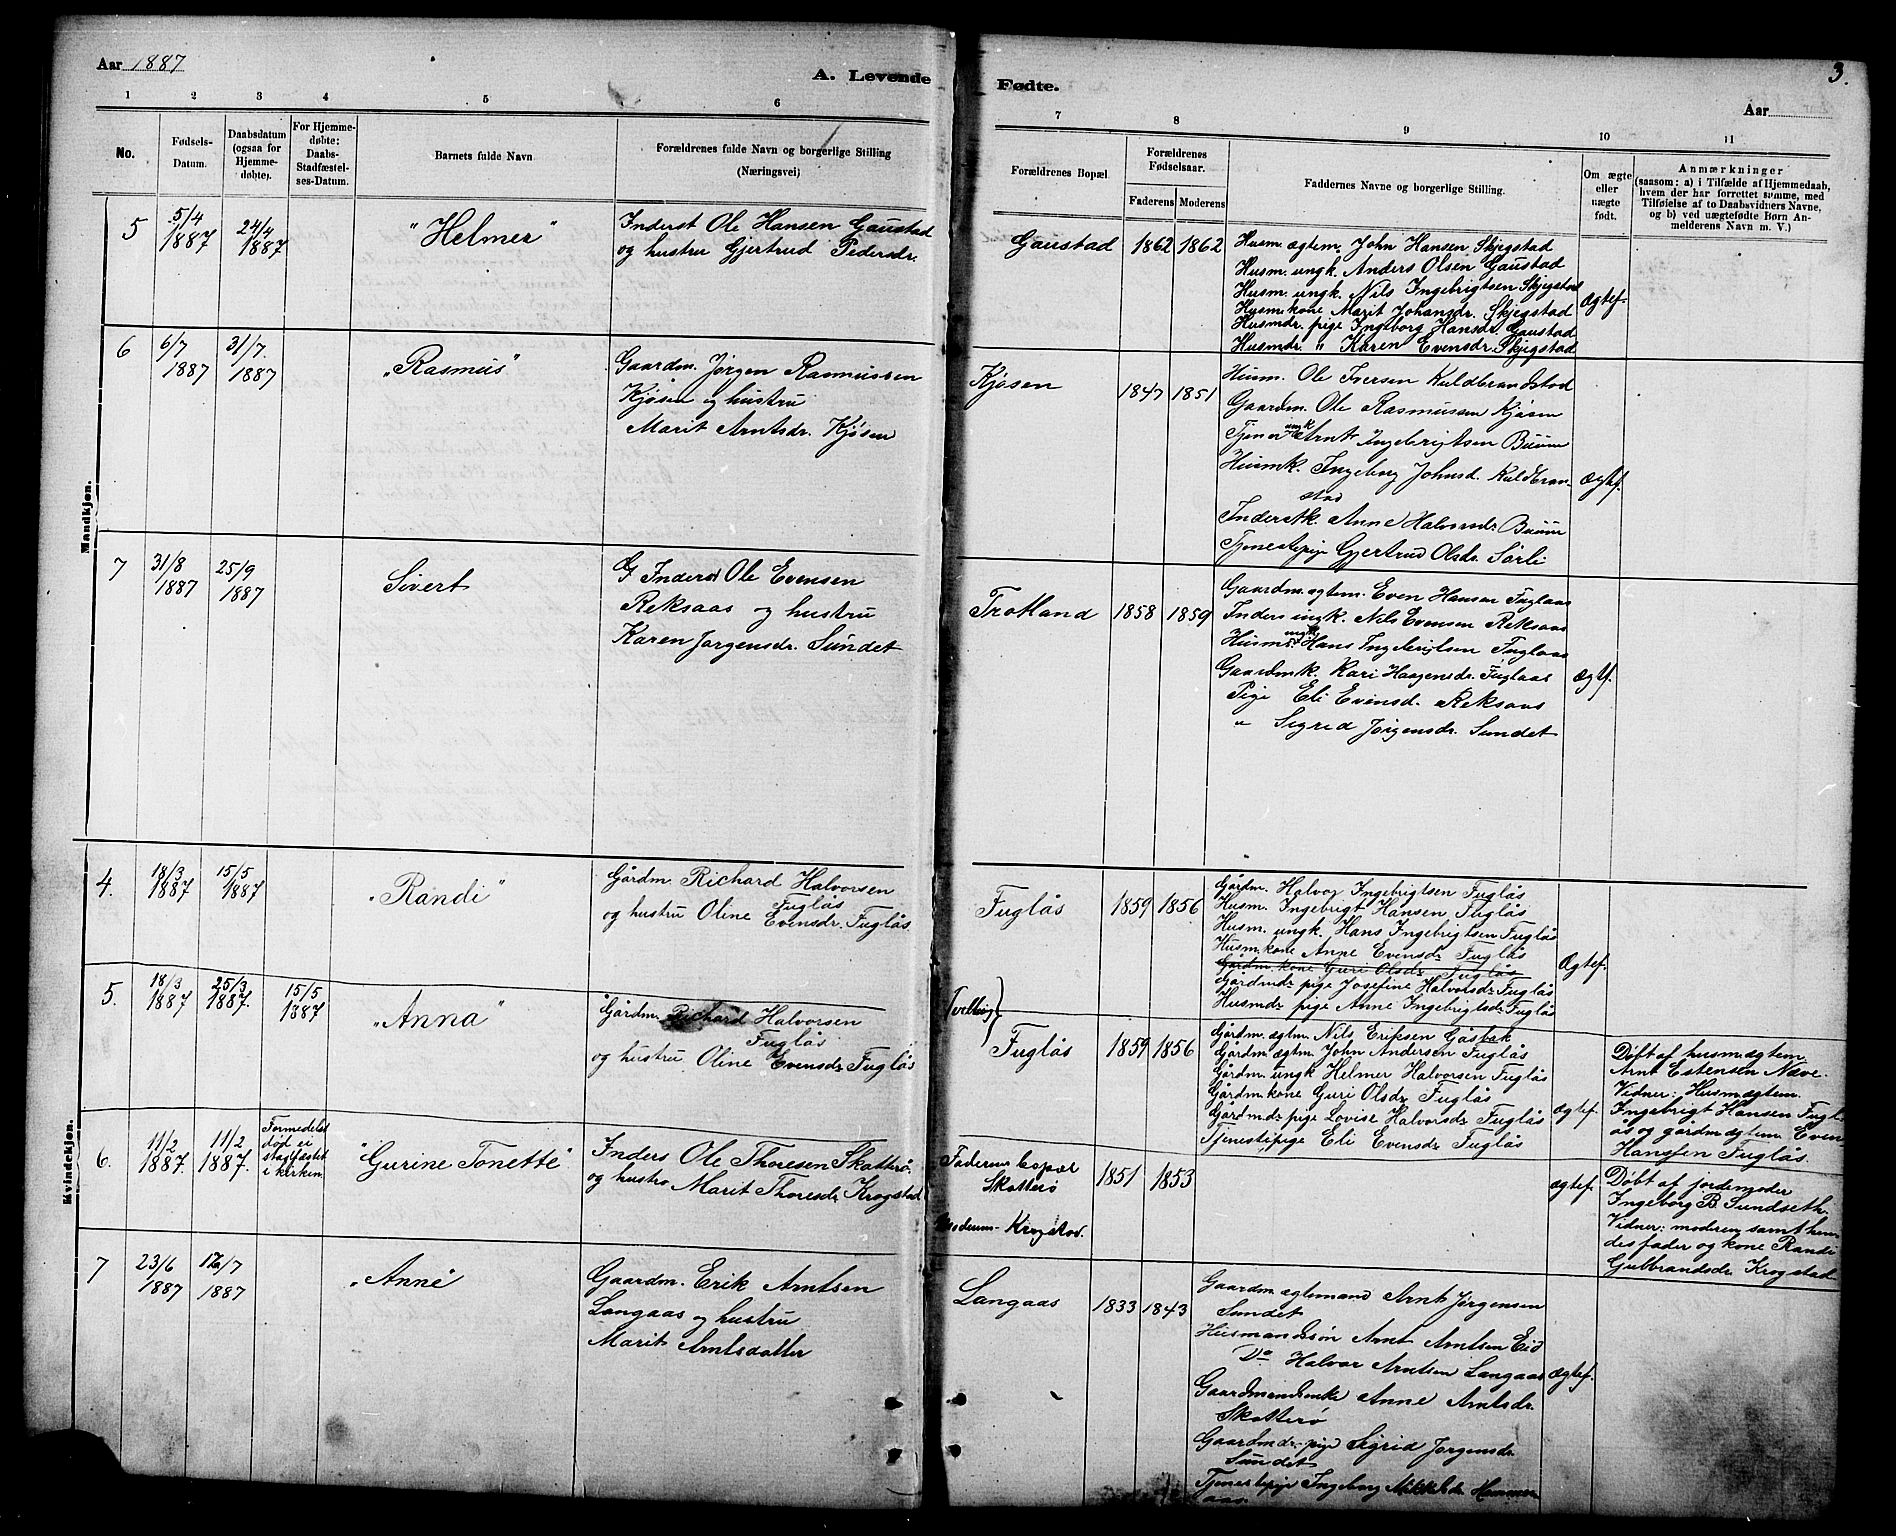 Aar 1887
A. Levende
Fødte.
3.
Aar
1 2 3 4 5 6 7 8 9 10 11
No.
Fødsels-
Datum.
Daabsdatum
(ogsaa for
Hjemme-
døbte).
For Hjemme-
døbte:
Daabs-
Stadfæstel-
ses-Datum.
Barnets fulde Navn
Forældrenes fulde Navn og borgerlige Stilling
(Næringsvei)
Forældrenes Bopæl
Forældrenes
Fødselsaar.
Faderens Moderens
Faddernes Navne og borgerlige Stilling.
Om ægte
eller
uægte
født.
Anmærkninger
(saasom: a) i Tilfælde af Hjemmedaab,
hvem der har forrettet samme, med
Tilføielse af to Daabsvidners Navne,
og b) ved uægtefødte Børn An-
melderens Navn m. V.)
Mandkjøn.
5
5/4
1887
24/4
1887
"Helmer"
Inderst Ole Hansen Gaustad
og hustru Gjertrud Pedersdr.
Gaustad
1862 1862
Husm. ægtem. John Hansen Skjegstad
Husm. ungk. Anders Olsen Gaustad
Husm. ungk. Nils Ingebrigtsen Skjegstad
Husm. kone Marit Johansdr. Skjegstad
Husmdr. pige Ingeborg Hansdr. Gaustad
Husmdr. " Karen Evensdr. Skjegstad
Ægtef.
6
6/7
1887
31/7.
1887
"Rasmus"
Gaardm. Jørgen Rasmussen
Kjøsen og hustru
Marit Arntsdr. Kjøsen
Kjøsen
1847 1851
Husm. Ole Iversen Kuldbrandstad
Gaardm. Ole Rasmussen Kjøsen
Tjener ungk Arnt Ingebrigtsen Buum
Husmk. Ingeborg Johnsd. Kuldbran-
stad
Inderstk Anne Halvorsdr. Buum
Tjenestepige Gjertrud Olsdr. Sørli
Ægtef.
7
31/8
1887
25/9
1887
Sivert
Inderst Ole Evensen
Reksaas og hustru
Karen Jørgensdr. Sundet
Trotland
1858 1859
Gaardm. ægtem. Even Hansen Fuglaas
Inders ungk. Nils Evensen Reksaas
Husm. ungk Hans Ingebrigtsen Fuglaas
Gaardmk. Kari Haagensdr. Fuglaas
Pige Eli Evensd. Reksaas
" Sigrid Jørgensdr. Sundet
Ægtf.
Kvindekjøn.
4.
18/3
1887
15/5
1887
"Randi"
Gårdm. Richard Halvorsen
Fuglås
og hustru Oline Evensdr. Fuglås.
Fuglås
1859 1856
Gårdm. Halvor Ingebrigtsen Fuglås
Husm. Ingebrigt Hansen Fuglås
Husm. ungk. Hans Ingebrigtsen Fuglås
Husm. kone Anne Evensdr Fuglås
Gårdm. kone Guri Olsdr Fuglås
Gårdmdr pige Josefine Halvorsdr Fuglås
Husmdr pige Anne Ingebrigtsdr Fuglås
Ægtef.
Tvilling
5.
18/3
1887
25/3
1887.
15/5
1887
"Anna"
Gårdm. Richard Halvorsen
Fuglås
og hustru Oline Evensdr Fuglås
Fuglås
1859 1856
Gårdm. ægtm. Nils Eriksen Gåsbak
Gårdm. ægtm. John Andersen Fuglås
Gårdm. ungk Helmer Halvorsen Fuglås
Gårdm. kone Guri Olsdr Fuglås
Gårdmdr pige Lovise Halvorsdr Fuglås
Tjenestepige Eli Evensdr Fuglås
Ægtef.
Døbt af husm. ægtem.
Arnt Estensen Næve.
Vidner: Husm. ægtem.
Ingebrigt Hansen Fugl-
ås og gårdm. ægtem. Even
Hansen Fuglås.
6.
11/2
1887.
11/2
1887.
Formedelst
død ei
stadfæstet
i kirken.
"Gurine Tonette"
Inders Ole Thoresen Skotterø
og hustro Marit Thoresdr. Krogstad
Faderens bopæl
Skotterø
Moderens- Krogstad.
1851 1853
ægtef.
Døbt af jordemoder
Ingeborg B. Sundseth.
Vidner: moderen samt hen-
des fader og kone Randi
Gulbrandsdr. Krogstad
7
23/6
1887
17/7
1887
"Anne"
Gaardm. Erik Arntsen
Langaas og hustru
Marit Arntsdatter
Langaas
1833 1843
Gaardm. ægtemand Arnt Jørgensen
Sundet
Husmandssøn Arnt Arntsen Eid
Do Halvor Arntsen Langaas
Gaardmandsenke Anne Arntsdr.
Skotterø
Gaardmdr. pige Sigrid Jørgensdr.
Sundet
Tjenestepige Ingeborg Mikkelsdr Hammer-
aas.
Ægtef.